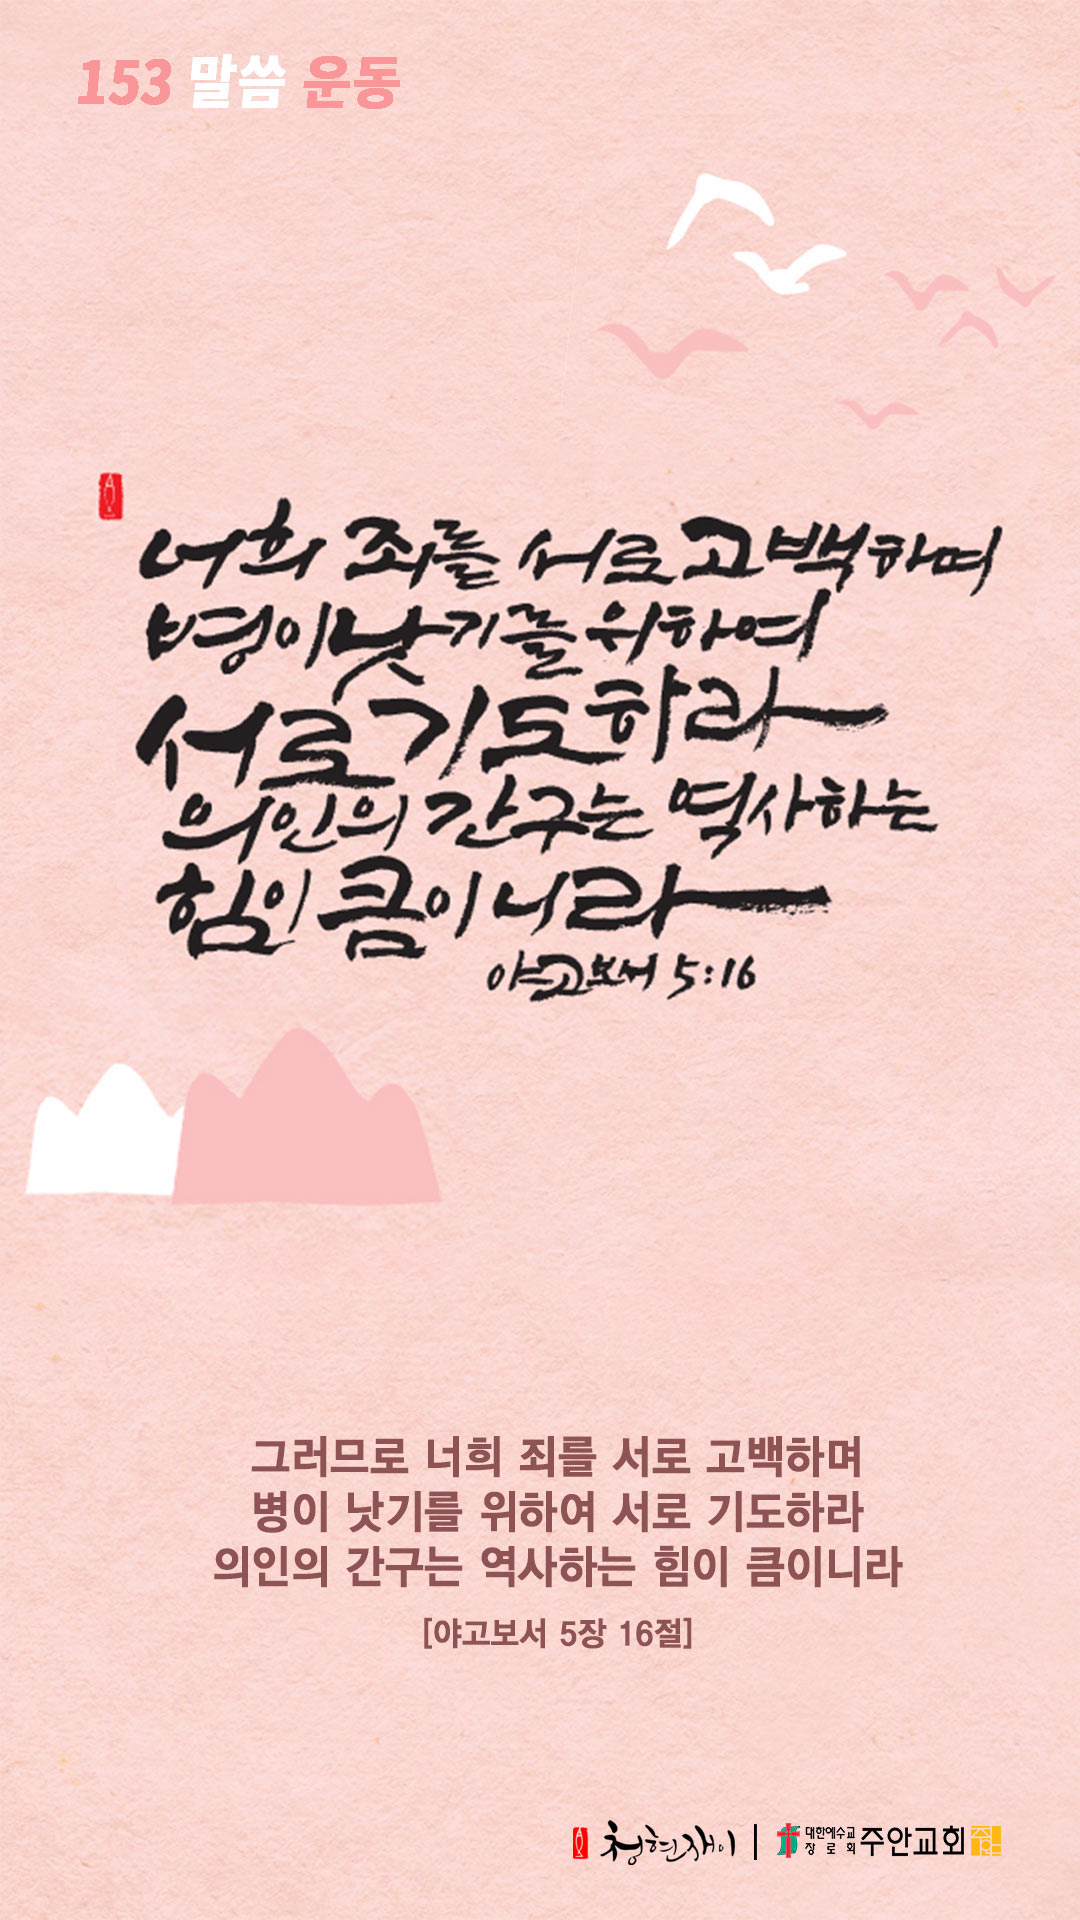 153 말씀 운동
너희 죄를 서로 고백하며
병이 낫기를 위하여
서로 기도하라
의인의 간구는 역사하는
힘이 큼이니라
야고보서 5:16
그러므로 너희 죄를 서로 고백하며
병이 낫기를 위하여 서로 기도하라
의인의 간구는 역사하는 힘이 큼이니라
[야고보서 5장 16절]
청현재이 | 대한예수교 장로회 주안교회